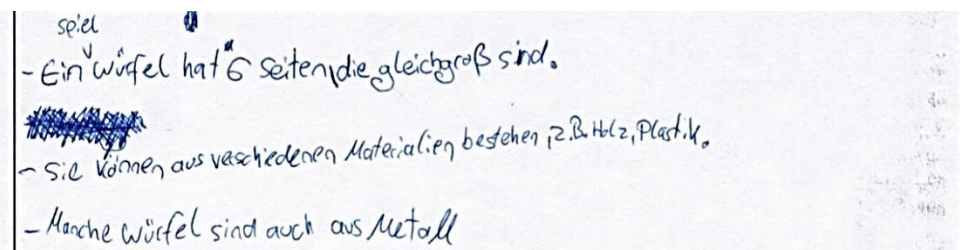 spiel
- Ein würfel hat 6 Seiten, die gleichgroß sind.
- Sie können aus veschiedenen Materialien bestehen, z.B. Holz, Plastik.
- Manche würfel sind auch aus Metall